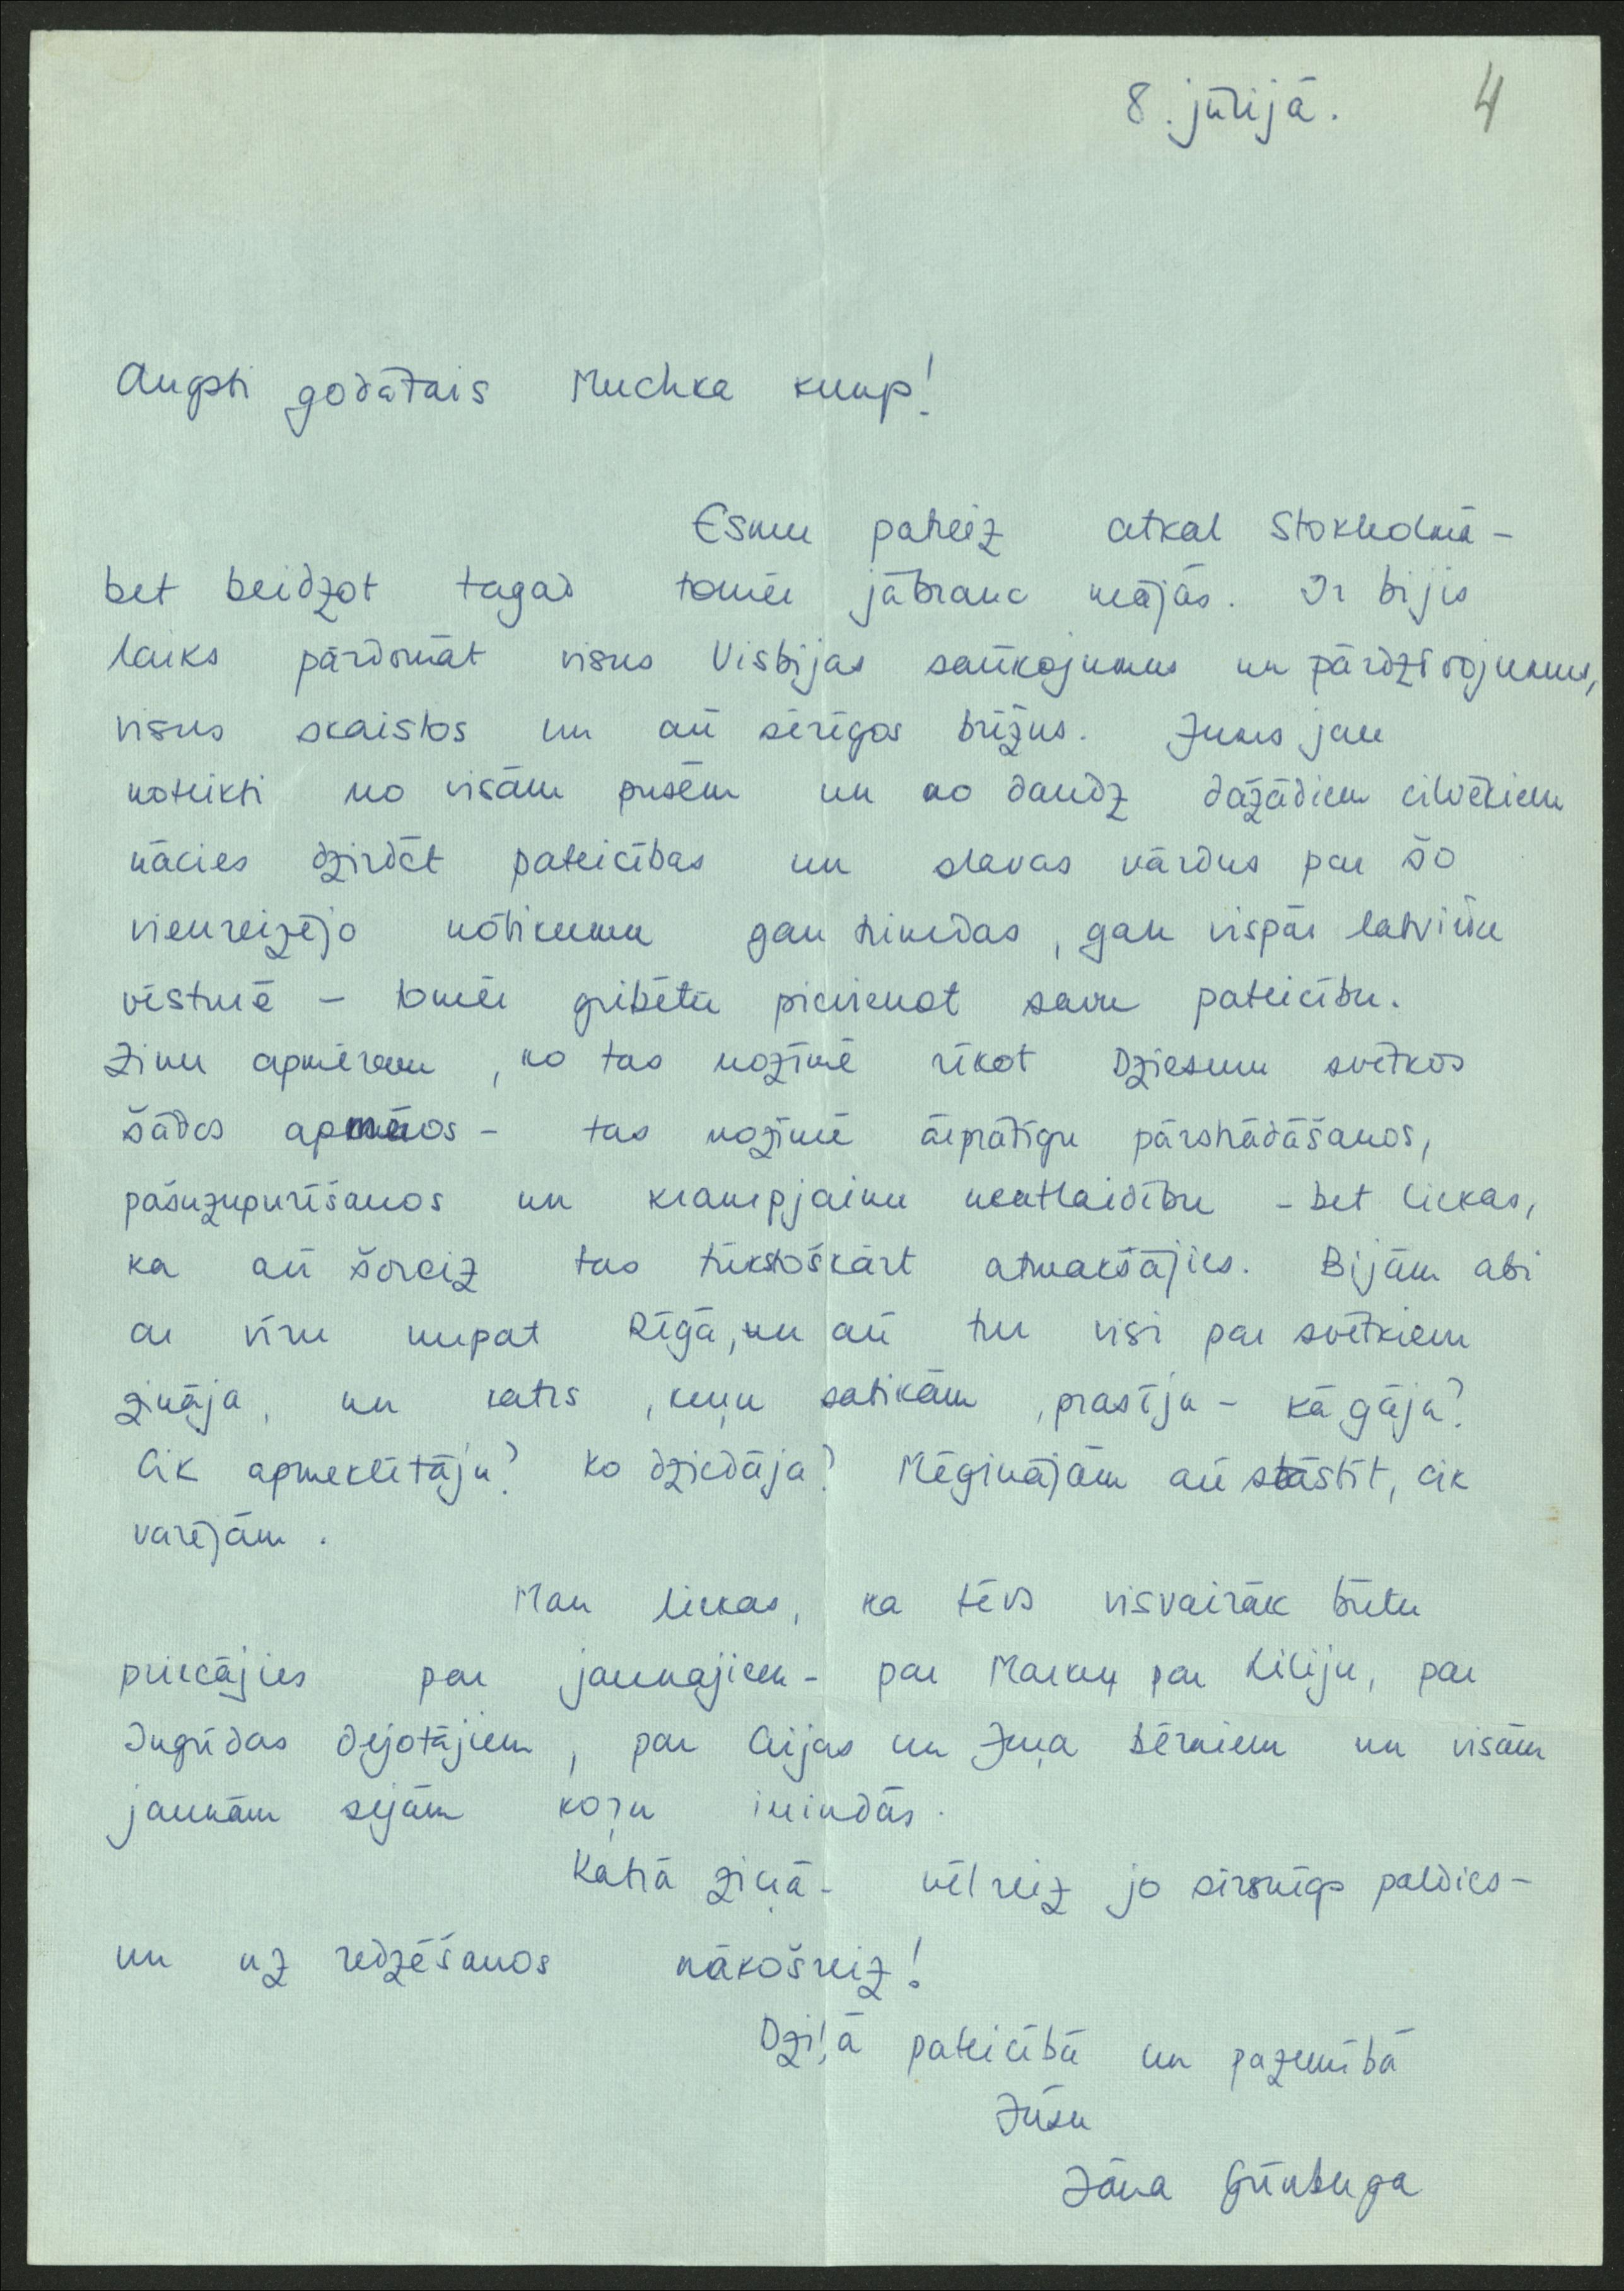 8. jūlijā. 4
Augsti godātais Muchka kungs!
Esmu patreiz atkal Stokholmā -
bet beidzot tagad tomēr jābrauc mājās. Ir bijis
laiks pārdomāt visus Visbijas sarīkojumus un pārdzīvojumus,
visus skaistos un arī sērīgos brīžus. Jums jau
noteikti no visām pusēm un no daudz dažādiem cilvēkiem
nācies dzirdēt pateicības un slavas vārdus par šo
vienreizējo nōtikumu gan trimdas, gan vispār latviešu
vēsturē - tomēr gribētu pievienot savu pateicību.
Zinu apmēram, ko tas nozīmē rīkot Dziesmu svētkos
šādos apmēros - tas nozīmē ārprātīgu pārstrādāšanos,
pašuzupurēšanos un krampjainu neatlaidību - bet liekas,
ka arī šoreiz tas tūkstoškārt atmaksājies. Bijām abi
ar vīru nupat Rīgā, un arī tur visi par svētkiem
zināja, un katrs, kuŗu satikām, prasīja - kā gāja?
Cik apmeklētāju? Ko dziedāja? Mēģinājām arī stāstīt, cik
varējām.
Man liekas, ka tēvs visvairāk būtu
priecājies par jaunajiem - par par Liliju, par
Ingrīdas dejotājiem, par Aijas un Juŗa bērniem un visām
jaunām sejām koŗu rindās.
Katrā ziņā - vēlreiz jo sirsnīgs paldies -
un uz redzēšanos nākošreiz!
Dziļā pateicībā un pazemībā
Jūsu
Jāna Grīnberga